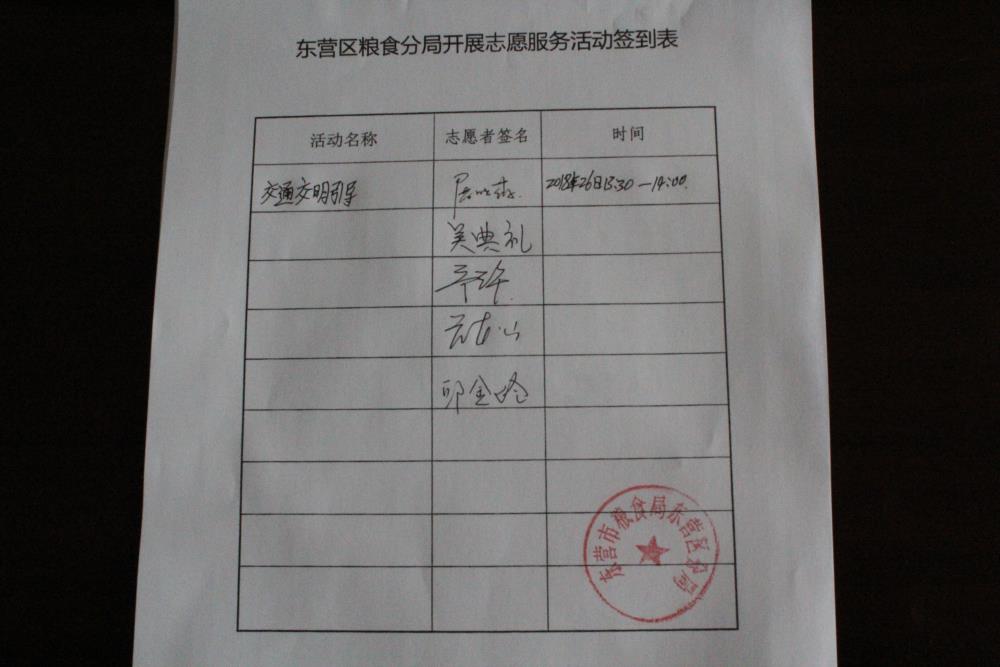 东营区粮食分局开展志愿服务活动签到表
活动名称 志愿者签名 时间
交通文明引导 2018年26日13:30—14:00.
吴典礼
邱金玲
东营市粮食局东营区分局